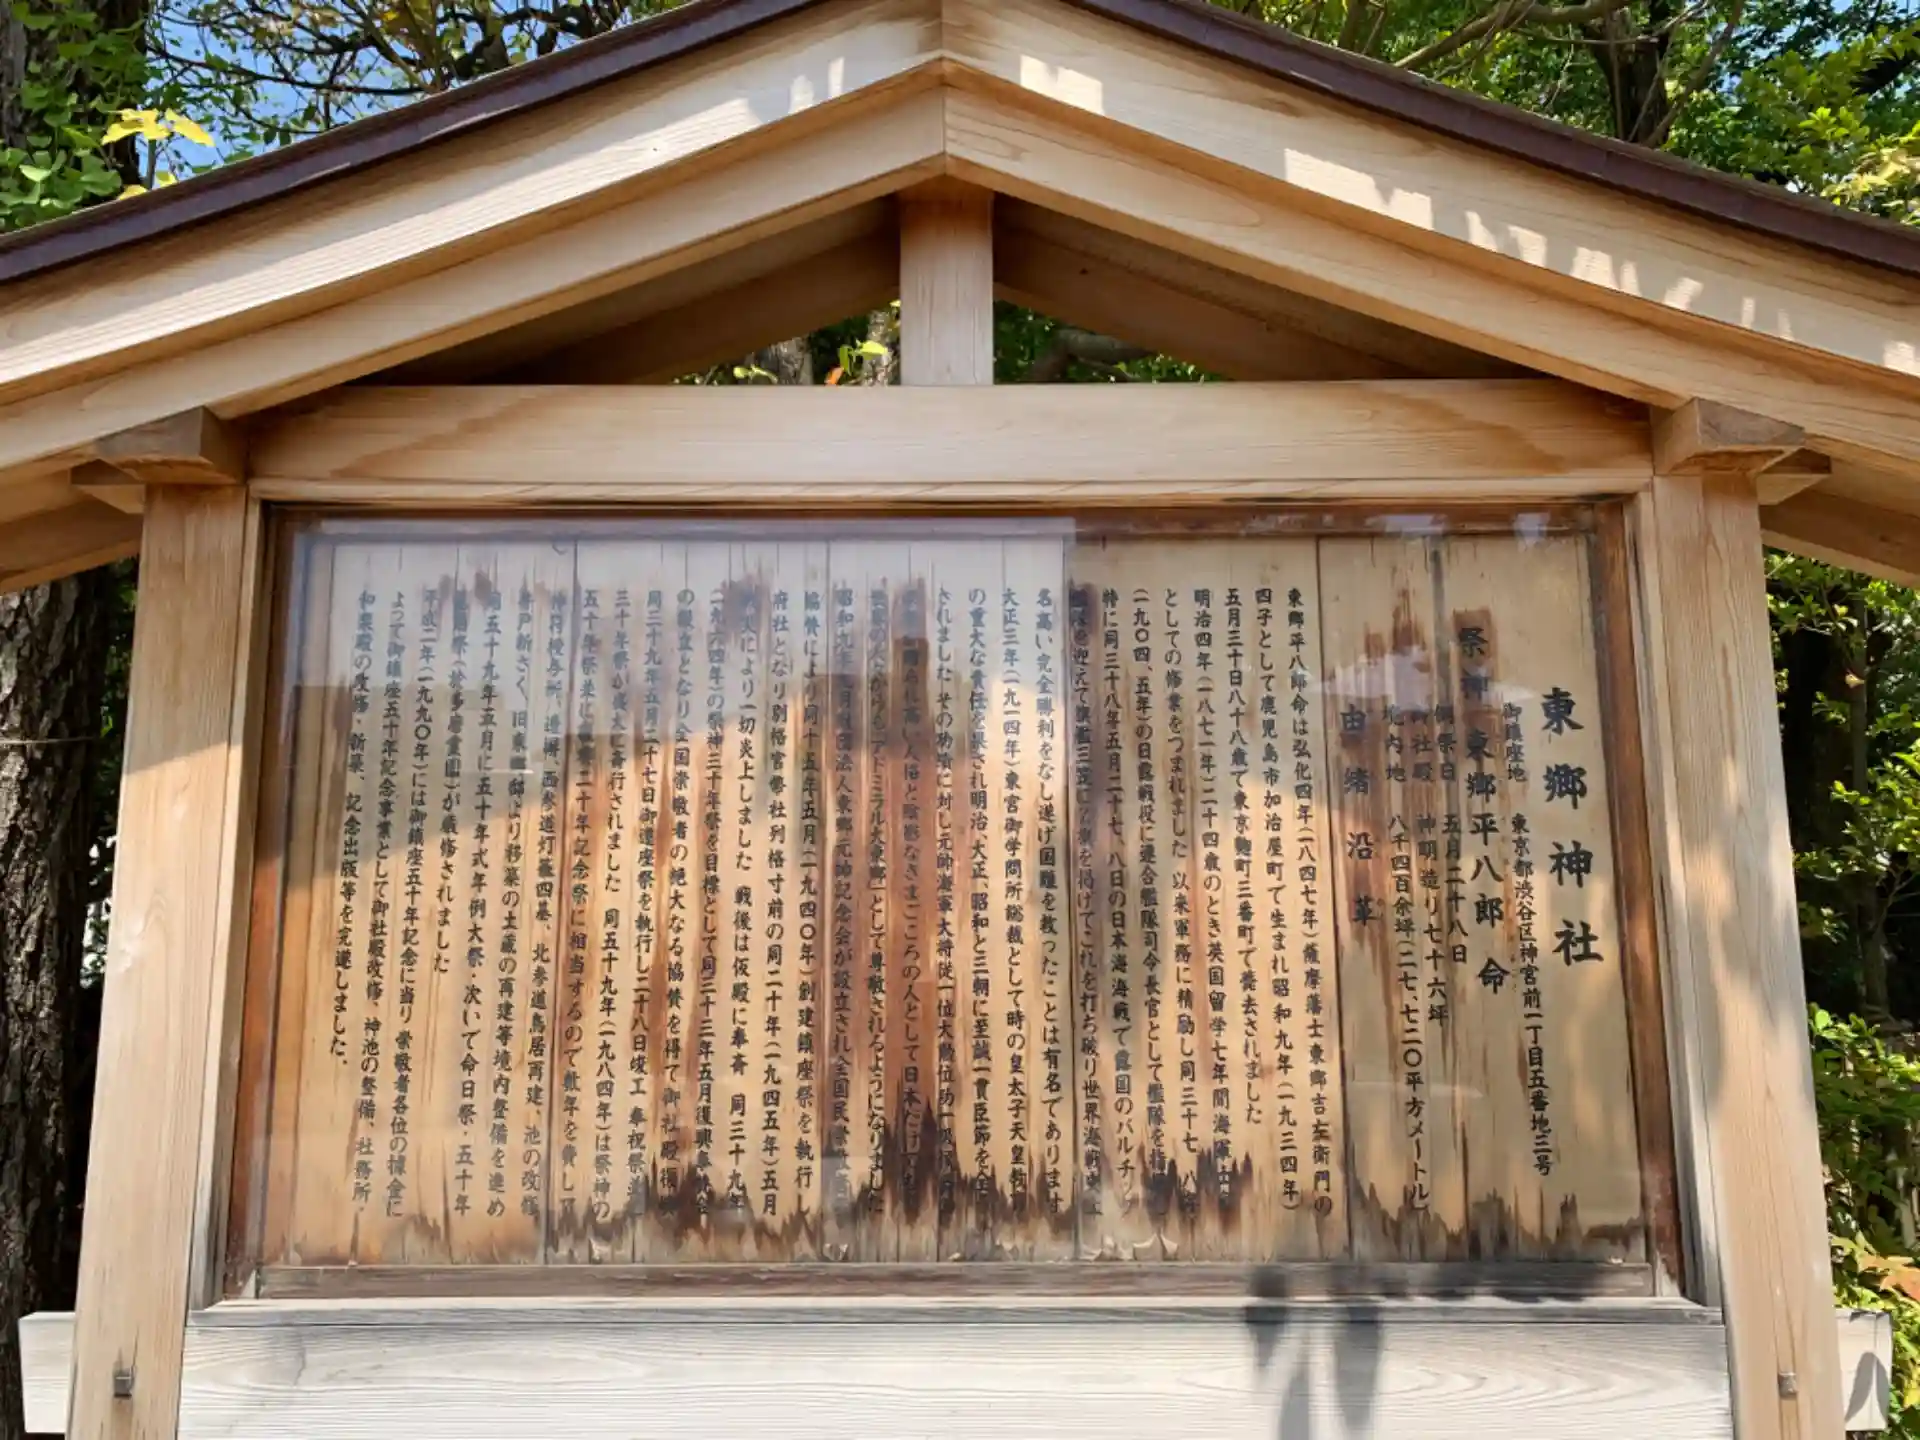 東郷神社
御鎮座地 東京都渋谷区神宮前一丁目五番地三号
祭神 東郷平八郎命
例祭日 五月二十八日
御社殿 神明造り七十六坪
境内地 八千四百余坪(二七、七二〇平方メートル)
由緒沿革
東郷平八郎命は弘化四年(一八四七年)薩摩藩士東郷吉左衛門の
四子として鹿児島市加治屋町で生まれ昭和九年(一九三四年)
五月三十日八十八歳で東京麹町三番町で薨去されました
明治四年(一八七一年)二十四歳のとき英国留学七年間海軍
としての修業をつまれました 以来軍務に精励し同三十七 八年
(一九〇四、五年)の日露戦役に連合艦隊司令長官として艦隊を指揮し
特に同三十八年五月二十七、八日の日本海海戦で露国のバルチック
を迎えて旗艦三笠にZ旗を掲げてこれを打ち破り世界海戦史上
名高い完全勝利をなし遂げ国難を救ったことは有名であります
大正三年(一九一四年)東宮御学問所総裁として時の皇太子天皇教育
の重大な責任を果され明治、大正、昭和と三朝に至誠一貫臣節を全う
されました その功績に対し元帥海軍大将従一位大勲位功一級
高い人格と陰影なきまごころの人として日本だけ
「アドミラル大東郷」として尊敬されるようになりました
昭和九年 月財団法人東郷元帥記念会が設立され全国民崇敬者
協賛により同十五年五月(一九四〇年)創建鎮座祭を執行し
府社となり別格官幣社列格寸前の同二十年(一九四五年)五月
戦災により一切炎上しました 戦後は仮殿に奉斎 同三十九年
(一九六四年)の祭神三十年祭を目標として同三十三年五月復興奉賛会
の設立となり全国崇敬者の絶大なる協賛を得て御社殿復興
同三十九年五月二十七日御遷座祭を執行し二十八日竣工奉祝祭並
三十年祭が盛大に斎行されました 同五十九年(一九八四年)は祭神の
五十年祭並に復興二十年記念祭に相当するので数年を費し
神符授与所、透塀、西参道灯籠四基、北参道鳥居再建、池の改修、
井戸新さく、旧東郷邸より移築の土蔵の再建等境内整備を進め
同五十九年五月に五十年式年例大祭・次いで命日祭・五十年
墓前祭(於多磨霊園)が厳修されました
平成二年(一九九〇年)には御鎮座五十年記念に当り崇敬者各位の懇金に
よって御鎮座五十年記念事業として御社殿改修、神池の整備、社務所・
和楽殿の改修・新築、記念出版等を完遂しました。